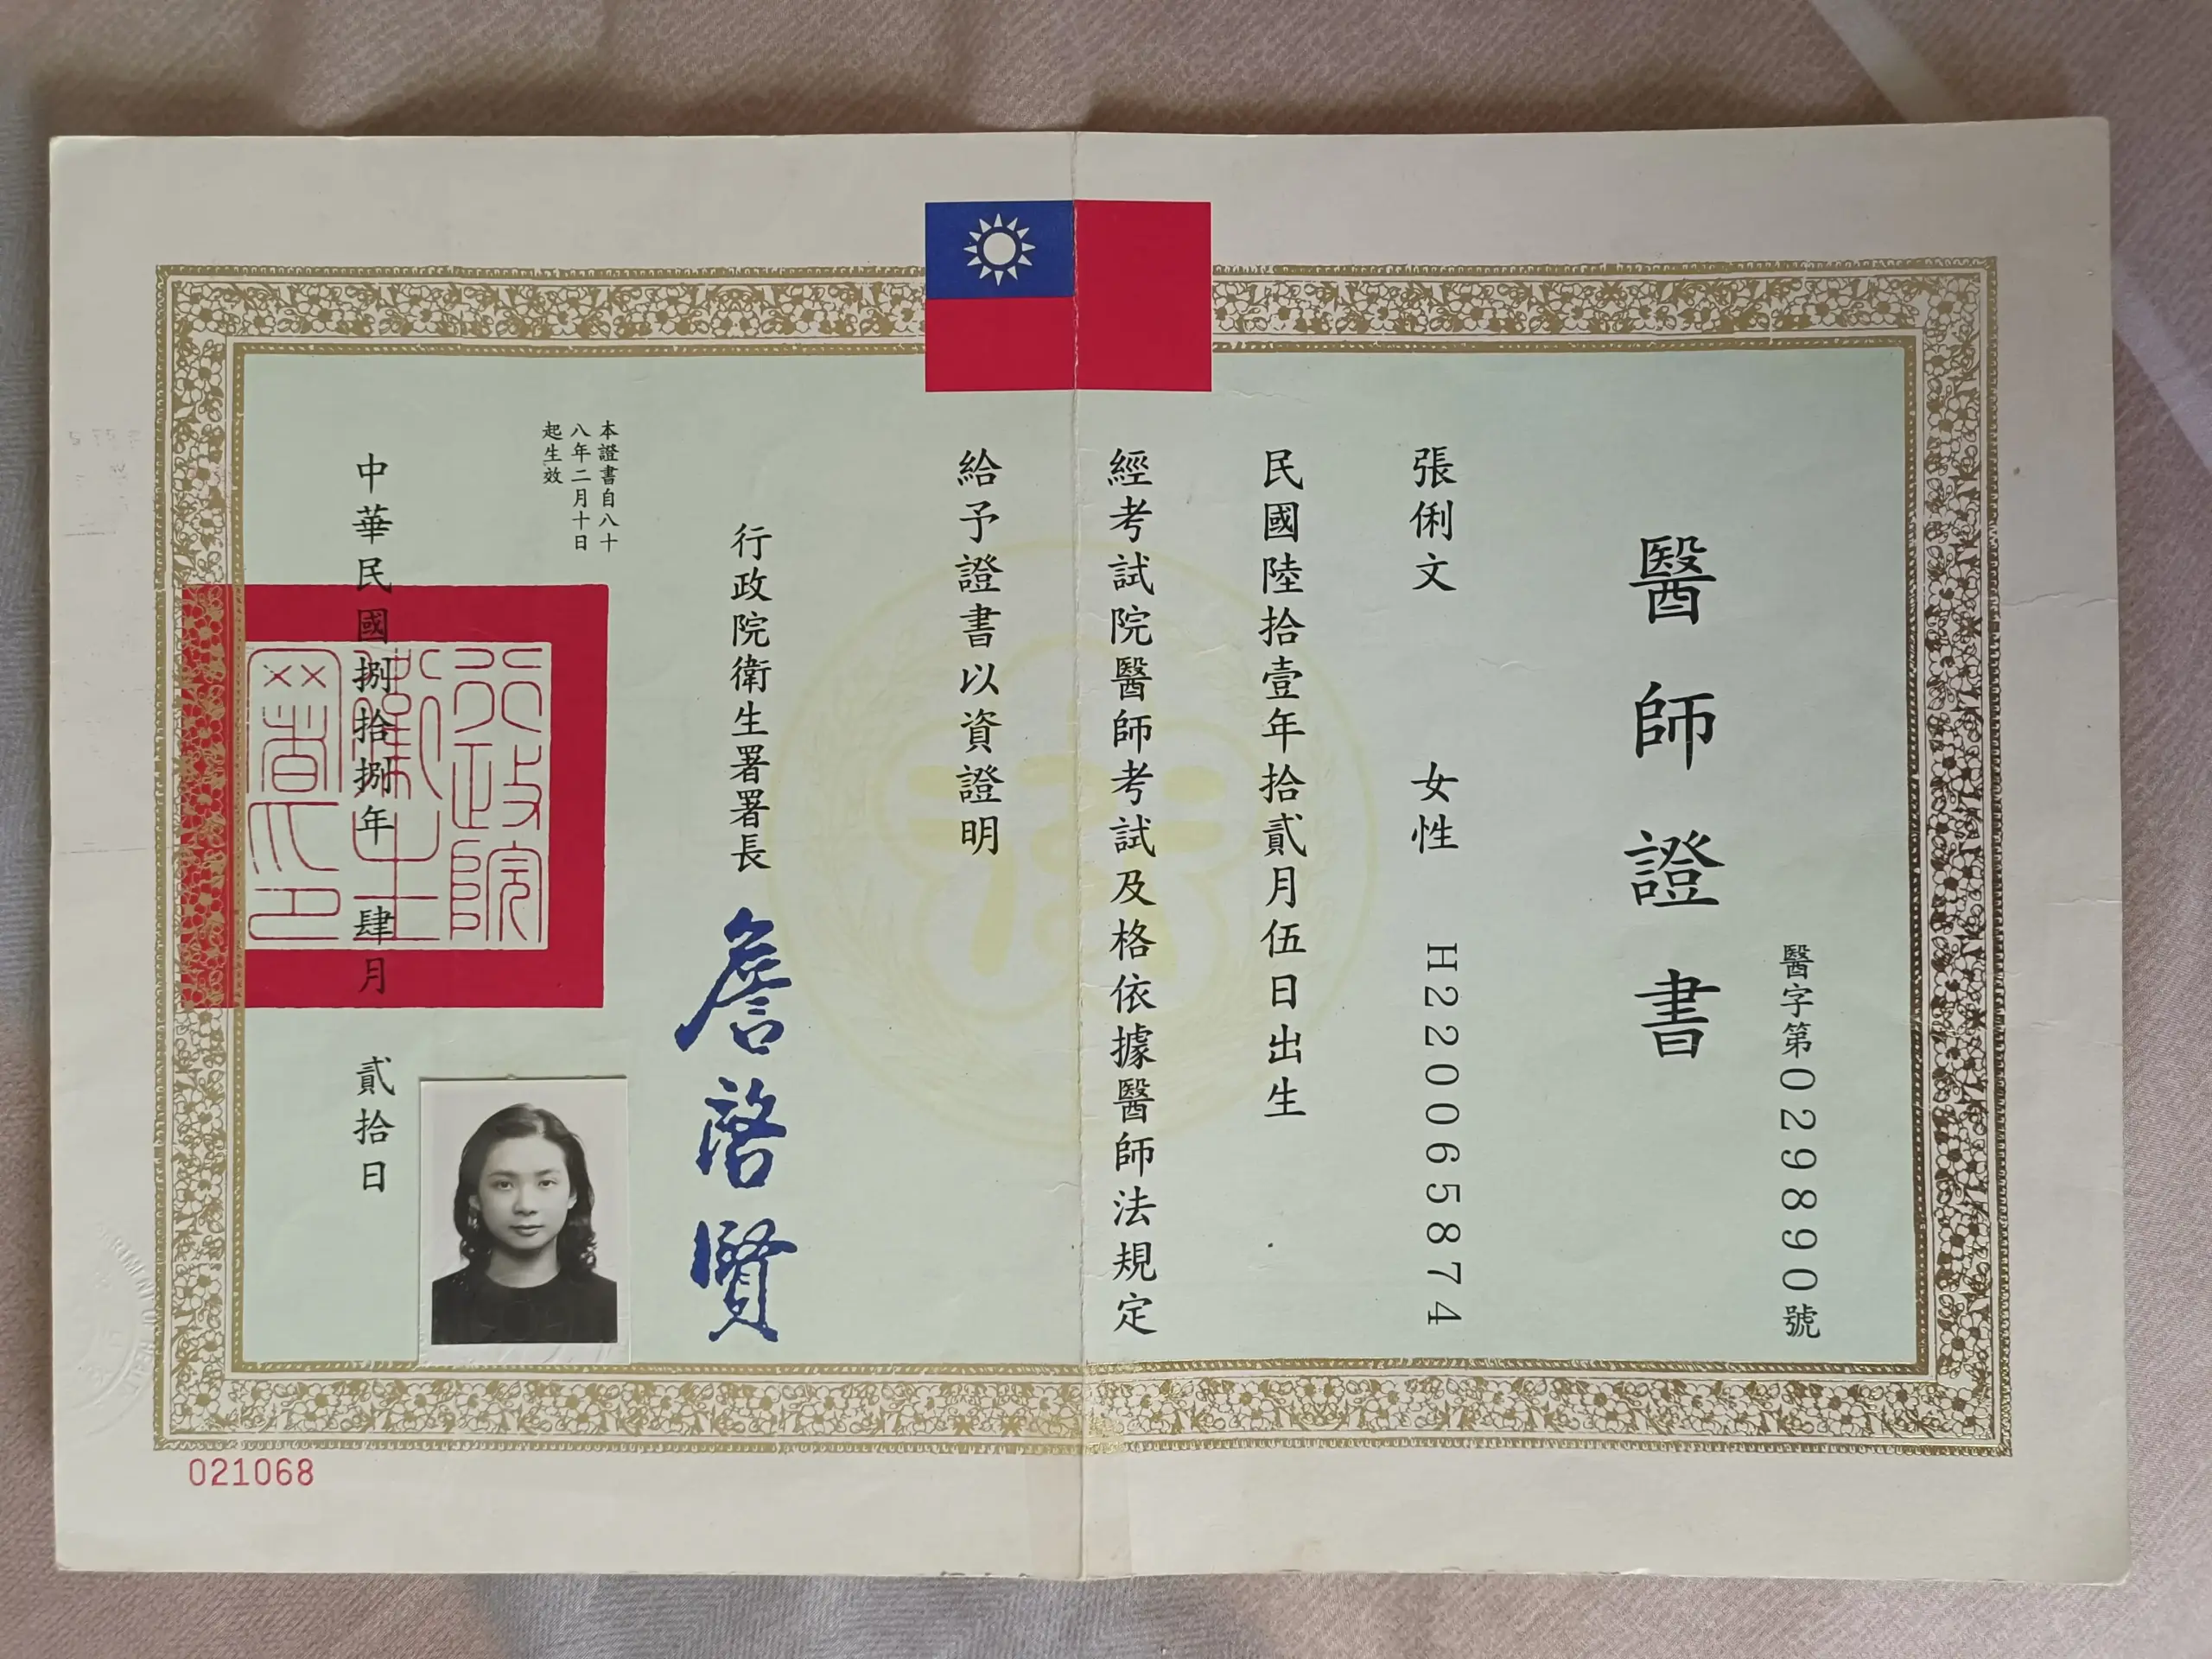 醫字第029890號
醫師證書
張俐文 女性 H220065874
民國陸拾壹年拾貳月伍日出生
經考試院醫師考試及格依據醫師法規定
給予證書以資證明
行政院衛生署署長 詹啓賢
本證書自八十
八年二月十日
起生效
行政院
衛生
署印
中華民國捌拾捌年肆月貳拾日
021068